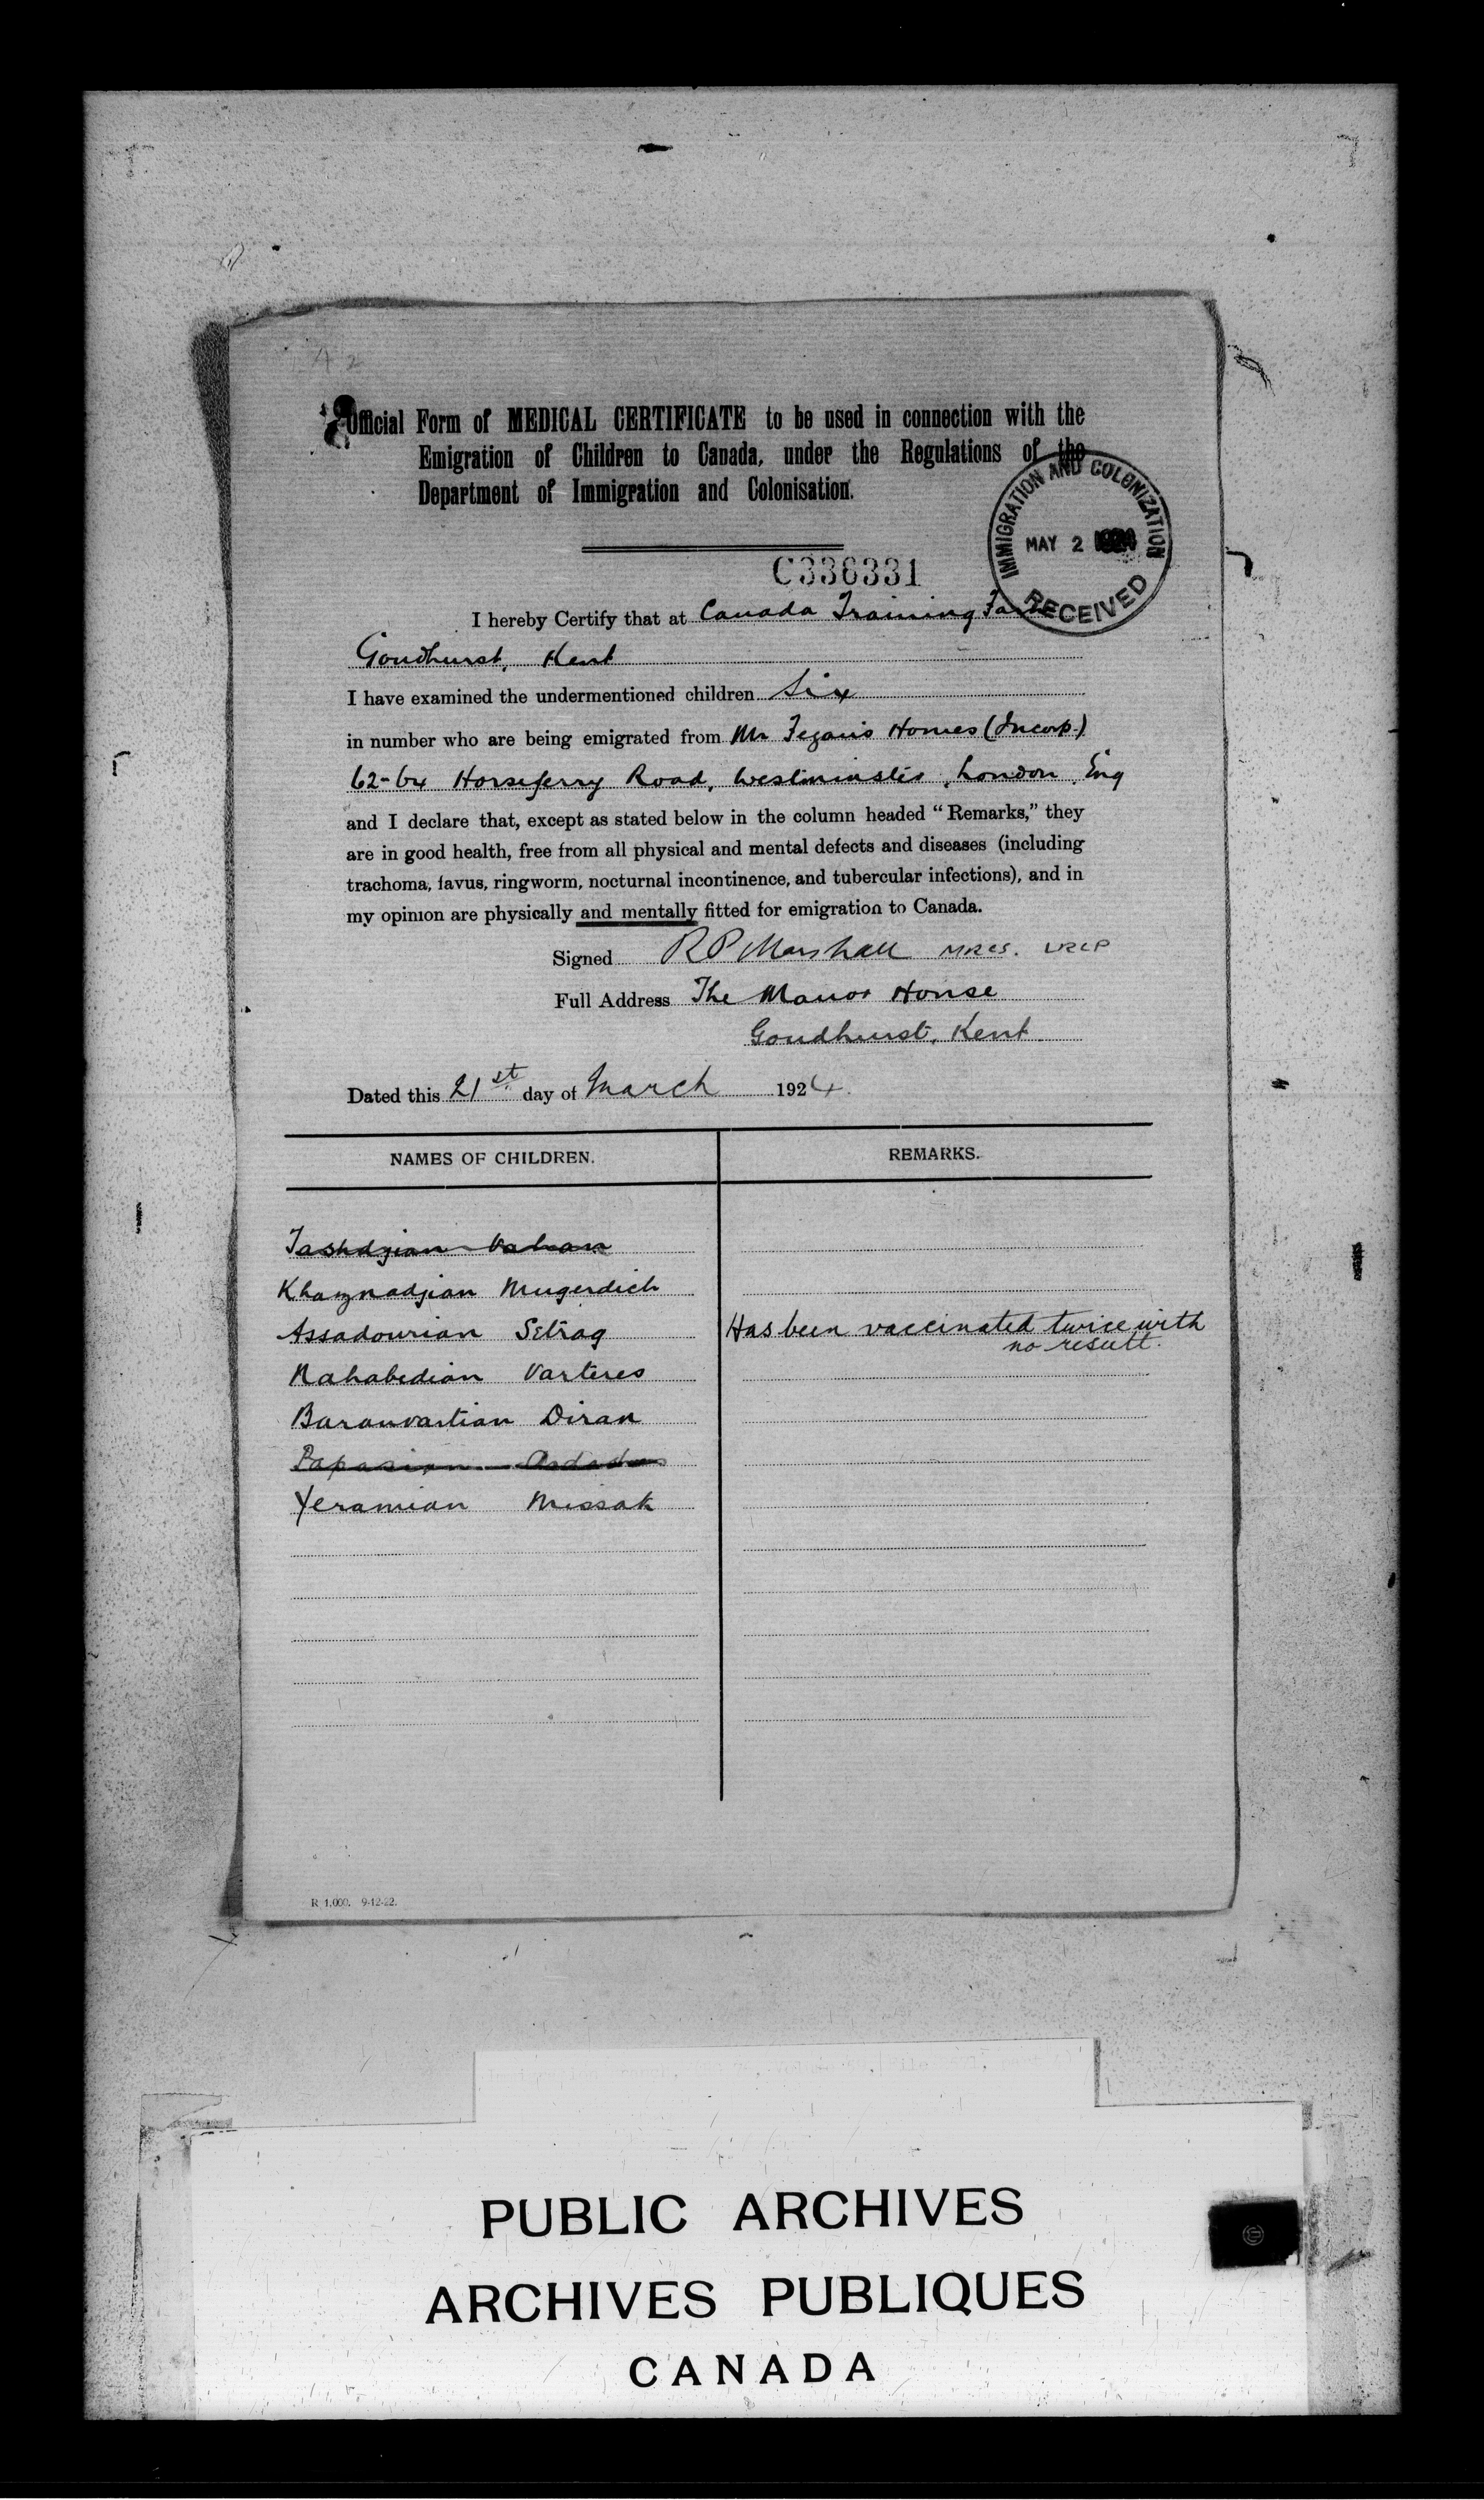 42
Official Form of MEDICAL CERTIFICATE to be used in connection with the
Emigration of Children to Canada, under the Regulations of the
Department of Immigration and Colonisation.
IMMIGRATION AND COLONIZATION
MAY 2 1924
RECEIVED
C336331
I hereby Certify that at Canada Training Farm
Goudhurst, Kent
I have examined the undermentioned children Six
in number who are being emigrated from Mr Fegan's Homes (Incorp.)
62-64 Horseferry Road, Westminster, London Eng
and I declare that, except as stated below in the column headed “Remarks,” they
are in good health, free from all physical and mental defects and diseases (including
trachoma, favus, ringworm, nocturnal incontinence, and tubercular infections), and in
my opinion are physically and mentally fitted for emigration to Canada.
Signed R P Marshall MRCS. LRCP
Full Address The Manor House
Goudhurst, Kent.
Dated this 21st day of March 1924.
NAMES OF CHILDREN. REMARKS.
Tashdjian Vahram
Khaznadjian Mugerdich
Assadourian Setrag Has been vaccinated twice with
no result.
Nahabedian Varteres
Baranvartian Diran
Papasian
Yeramian Missak
R 1,000. 9-12-22.
PUBLIC ARCHIVES
ARCHIVES PUBLIQUES
CANADA